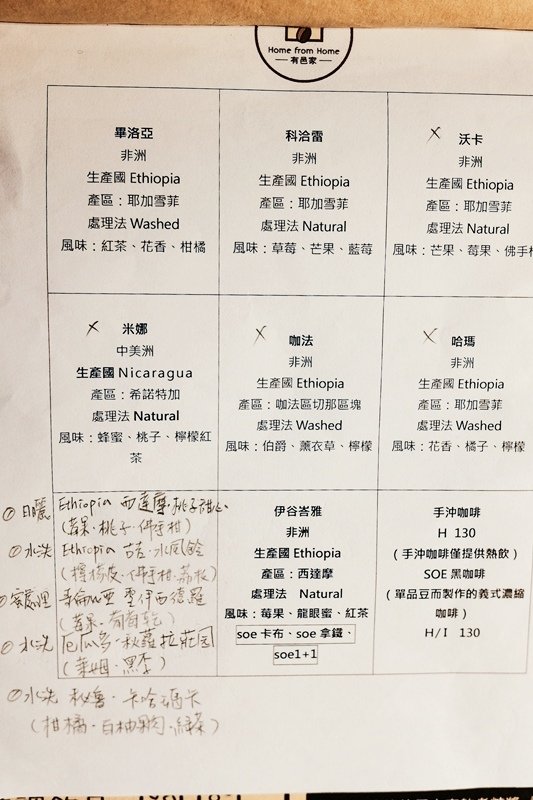 Home from Home
有邑家
畢洛亞
非洲
生產國 Ethiopia
產區：耶加雪菲
處理法 Washed
風味：紅茶、花香、柑橘
科洽雷
非洲
生產國 Ethiopia
產區：耶加雪菲
處理法 Natural
風味：草莓、芒果、藍莓
X 沃卡
非洲
生產國 Ethiopia
產區：耶加雪菲
處理法 Natural
風味：芒果、莓果、佛手柑
X 米娜
中美洲
生產國 Nicaragua
產區：希諾特加
處理法 Natural
風味：蜂蜜、桃子、檸檬紅
茶
X 咖法
非洲
生產國 Ethiopia
產區：咖法區切那區塊
處理法 Washed
風味：伯爵、薰衣草、檸檬
X 哈瑪
非洲
生產國 Ethiopia
產區：耶加雪菲
處理法 Washed
風味：花香、橘子、檸檬
日曬 Ethiopia 西達摩·桃子甜心
(莓果·桃子·佛手柑)
水洗 Ethiopia 水風鈴
(檸檬皮·佛手柑·荔枝)
蜜處理 哥倫比亞 聖伊西德羅
(莓果·葡萄乾)
水洗 厄瓜多·秋蘿拉莊園
(萊姆·黑李)
水洗 秘魯·卡哈瑪卡
(柑橘·白柚果肉·綠茶)
伊谷峇雅
非洲
生產國 Ethiopia
產區：西達摩
處理法 Natural
風味：莓果、龍眼蜜、紅茶
soe 卡布、soe 拿鐵、
soe1+1
手沖咖啡
H 130
(手沖咖啡僅提供熱飲)
SOE 黑咖啡
(單品豆而製作的義式濃縮
咖啡)
H/I 130